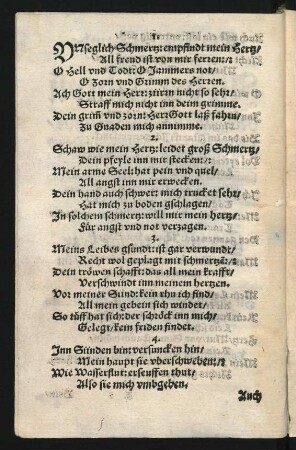 1.
VNseglich Schmertz: empfindt mein Hertz/
All freud ist von mir ferren:/:
O Hell vnd Todt: O Jammers not/
O Zorn vnd Grimm des Herren.
Ach Gott mein Herr: zürn nicht so sehr/
Straff mich nicht inn deim grimme.
Dein grim̃ vnd zorn: Herr Gott laß fahrn/
Zu Gnaden mich annimme.
2.
Schaw wie mein Hertz: leidet groß Schmertz/
Dein pfeyle inn mir stecken:/:
Mein arme Seel: hat pein vnd quel/
All angst inn mir erwecken.
Dein hand auch schwert mich trucket sehr/
Hat mich zu boden gschlagen/
In solchem schmertz: will mir mein hertz/
Für angst vnd not verzagen.
3.
Meins Leibes gsundt: ist gar verwundt/
Recht wol geplagt mit schmertzẽ:/:
Dein tröwen schafft: das all mein krafft/
Verschwindt inn meinem hertzen.
Vor meiner Sünd: kein rhu ich find/
All mein gebein sich winder/
So tüff hat sich: der schröck inn mich/
Gelegt/ kein friden findet.
4.
Inn Sünden bin: versuncken hin/
Mein haupt sie vberschweben:/:
Wie Wasserflut: erseuffen thut/
Also sie mich vmbgeben.
Auch